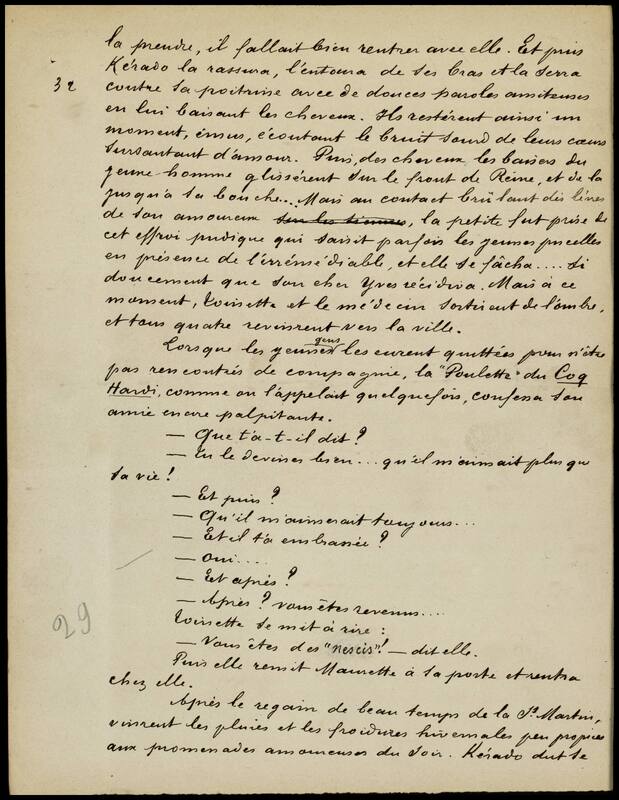 la prendre, il fallait bien rentrer avec elle. Et puis
32
Kérado la rassura, l'entoura de ses bras et la serra
contre sa poitrine avec de douces paroles amiteuses
en lui baisant les cheveux. Ils restèrent ainsi un
moment, émus, écoutant le bruit sourd de leurs cœurs
sursautant d'amour. Puis, des cheveux, les baisers du
jeune homme glissèrent sur le front de Reine, et de là
jusqu'à sa bouche... Mais au contact brûlant des lèvres
de son amoureux sur les siennes, la petite fut prise de
cet effroi pudique qui saisit parfois les jeunes pucelles
en présence de l'irrémédiable, et elle se fâcha.... si
doucement que son cher Yves récidiva. Mais à ce
moment, Toinette et le médecin sortirent de l'ombre,
et tous quatre revinrent vers la ville.
Lorsque les jeunes gens les eurent quittées pour n'être
pas rencontrés de compagnie, la "Poulette" du Coq
Hardi, comme on l'appelait quelquefois, confessa son
amie encore palpitante.
— Que t'a-t-il dit?
— Tu le devines bien... qu'il m'aimait plus que
sa vie!
— Et puis?
— Qu'il m'aimerait toujours...
— Et il t'a embrassée?
— Oui....
— Et après?
— Après? vous êtes revenus....
29
Toinette se mit à rire:
— Vous êtes des "nescis"! — dit elle.
Puis elle remit Maurette à sa porte et rentra
chez elle.
Après le regain de beau temps de la St Martin,
vinrent les pluies et les froidures hivernales peu propices
aux promenades amoureuses du soir. Kérado dut se